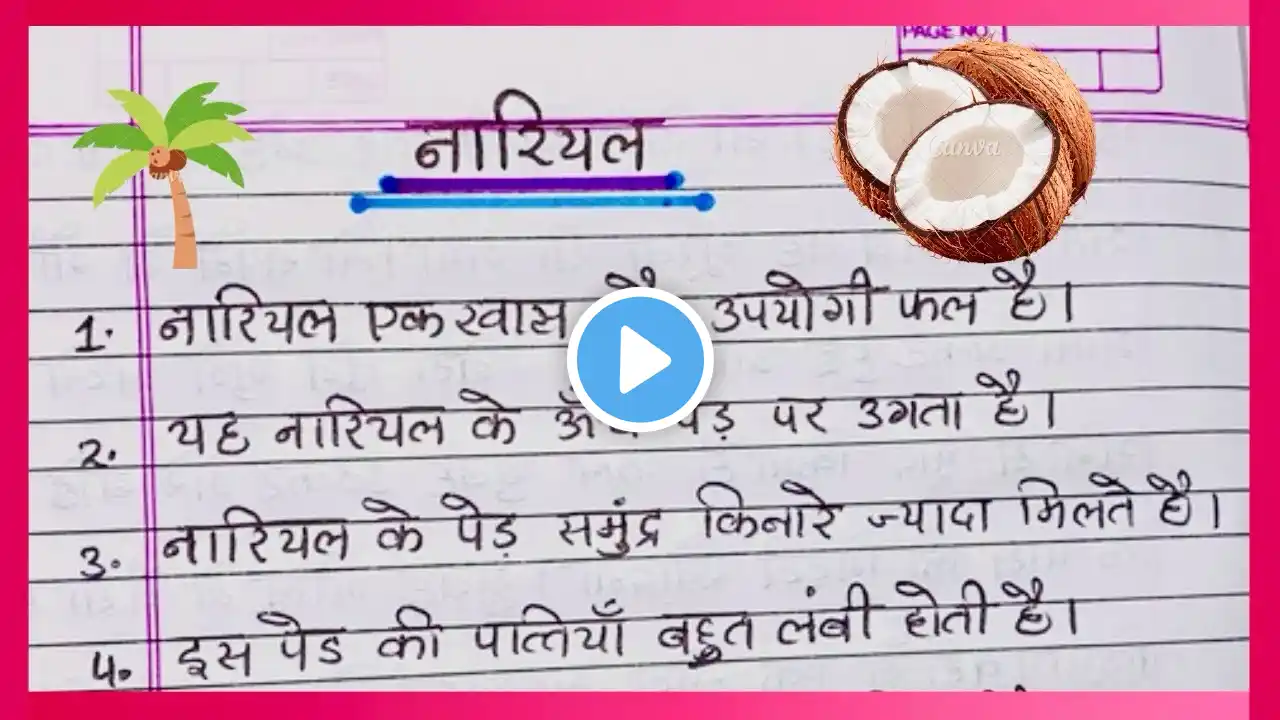 PAGE NO.
नारियल
Canva
1. नारियल एक खास उपयोगी फल है।
2. यह नारियल के पेड़ पर उगता है।
3. नारियल के पेड़ समुंद्र किनारे ज्यादा मिलते है।
4. इस पेड की पत्तियाँ बहुत लंबी होती है।